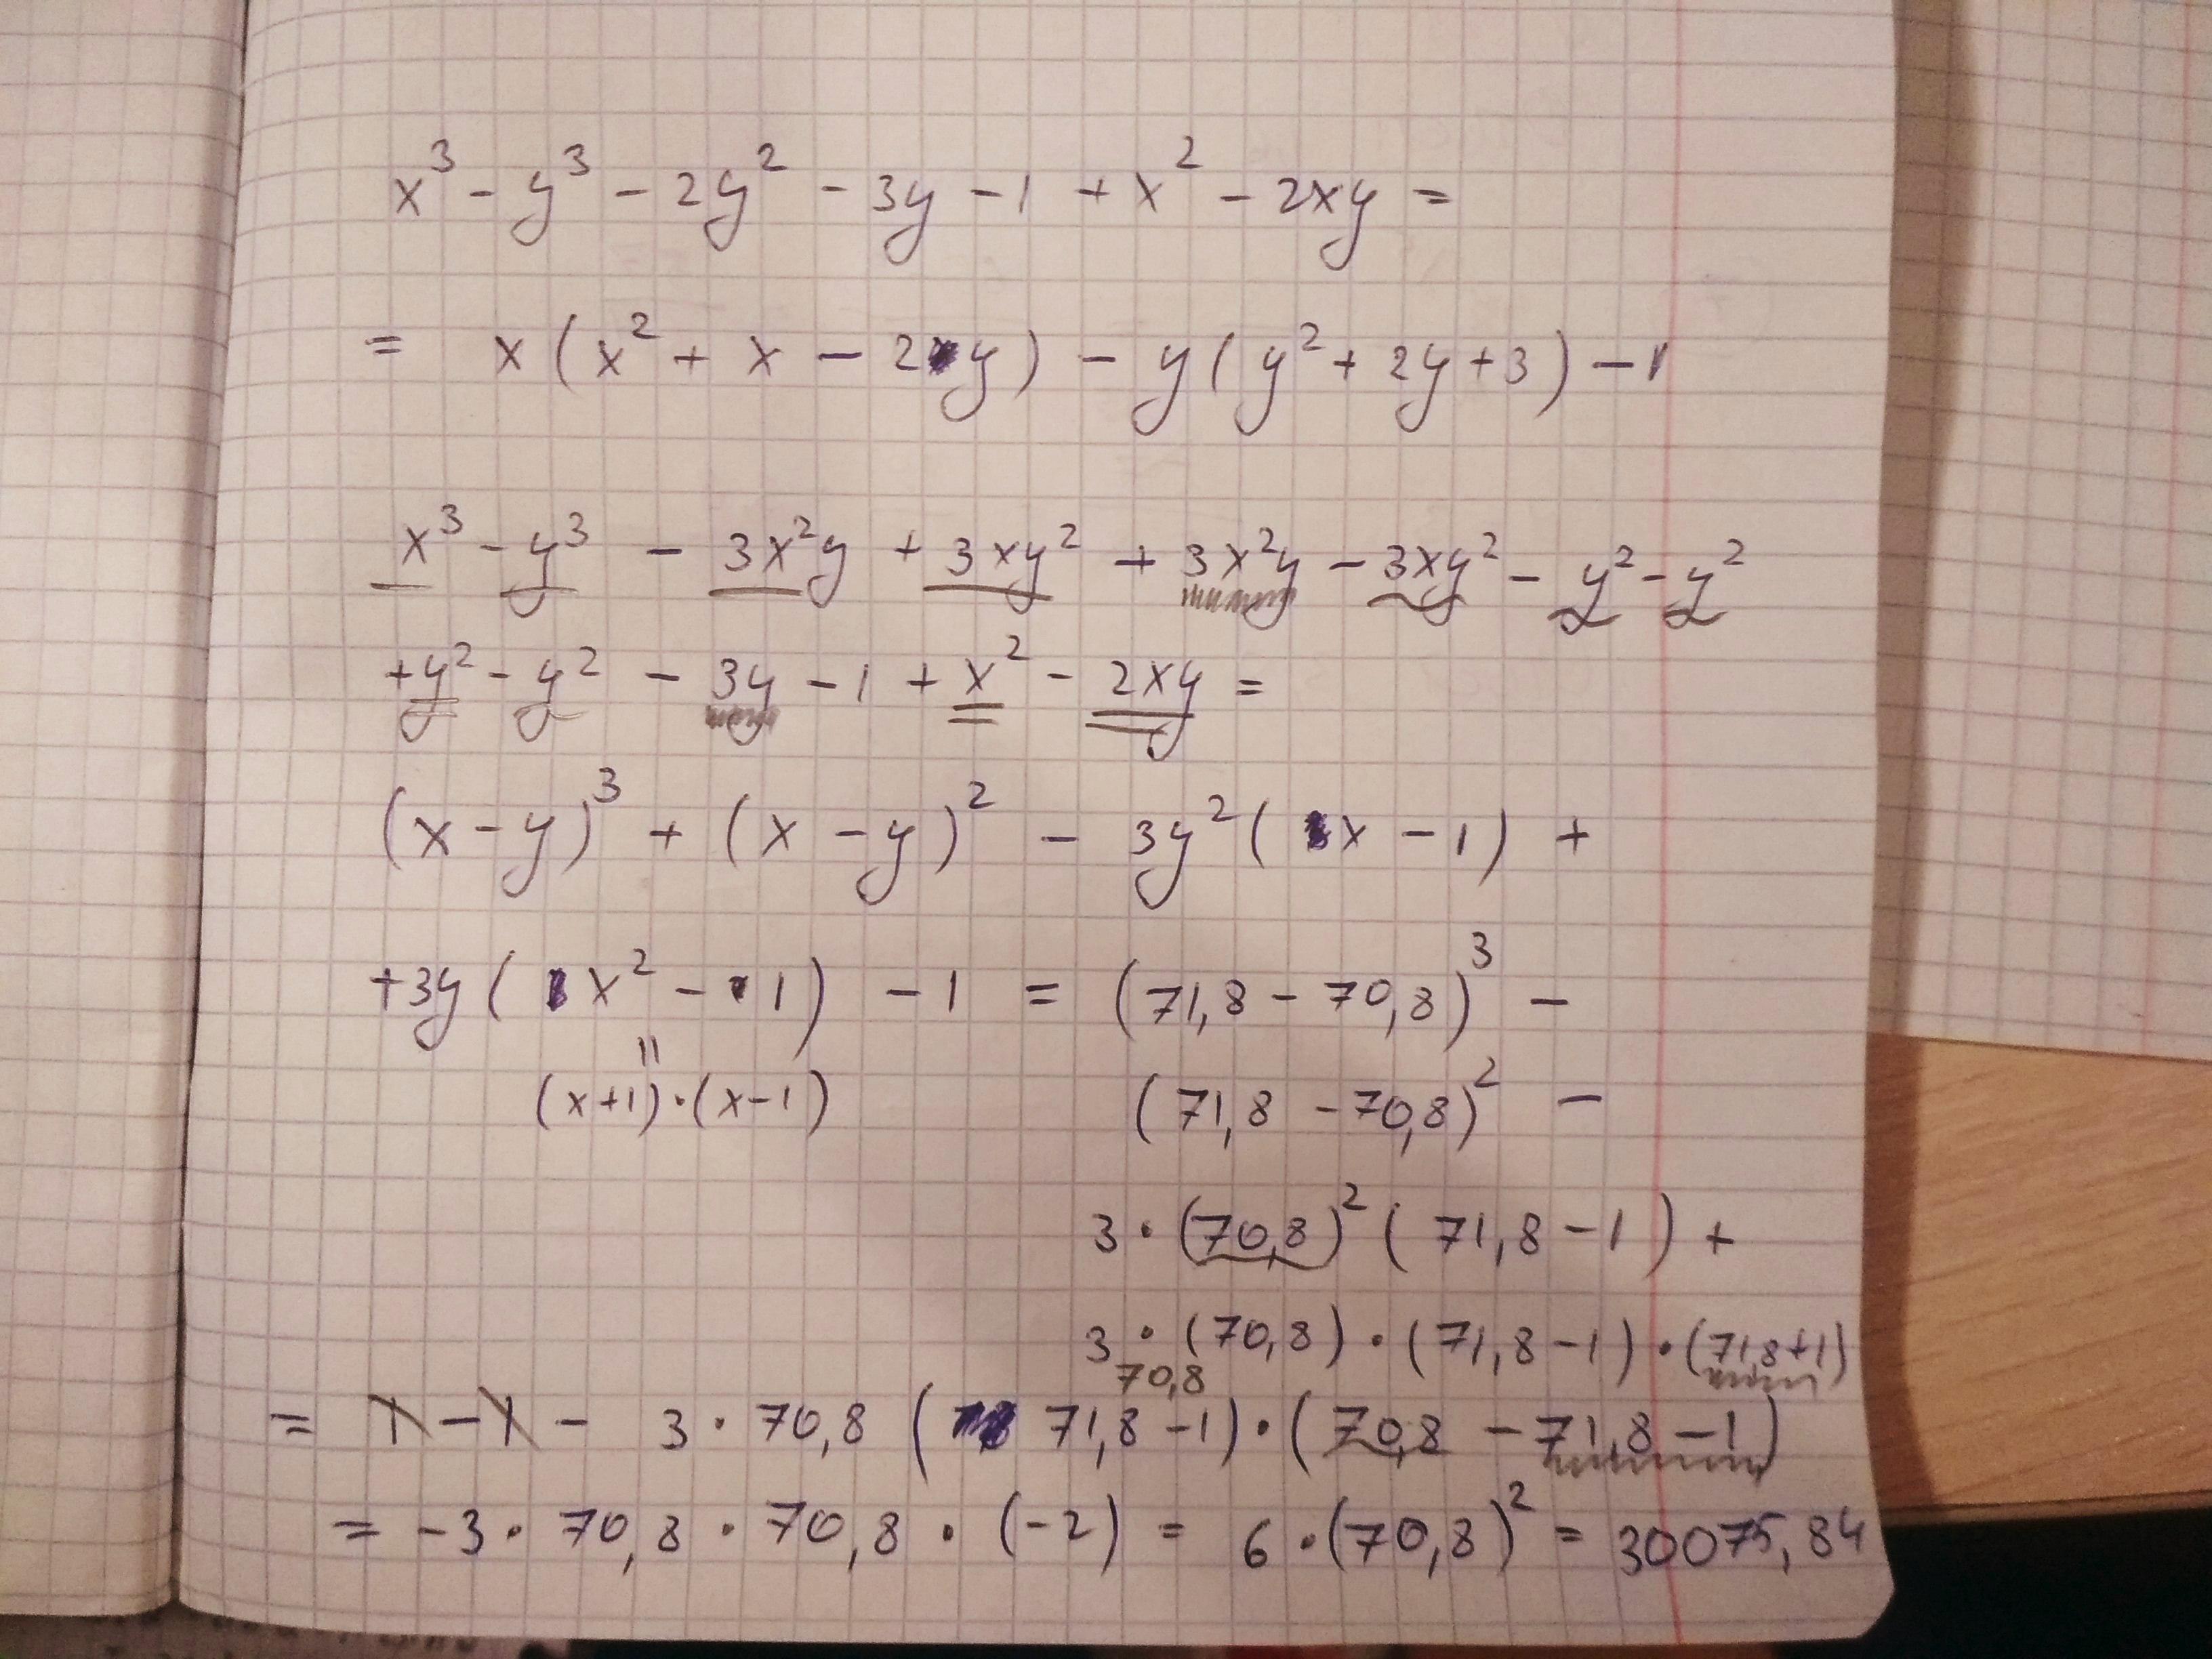 x³ - y³ - 2y² - 3y - 1 + x² - 2xy =
= x(x² + x - 2y) - y(y² + 2y + 3) - 1
x³ - y³ - 3x²y + 3xy² + 3x²y - 3xy² - y² - y²
+y² - y² - 3y - 1 + x² - 2xy =
(x - y)³ + (x - y)² - 3y²(x - 1) +
+3y(x² - 1) - 1 = (71,8 - 70,8)³ -
(x+1)·(x-1) (71,8 - 70,8)² -
3·(70,8)²(71,8 - 1) +
3·(70,8)·(71,8 - 1)·(71,8+1)
70,8
= 1 - 1 - 3·70,8(71,8 - 1)·(70,8 - 71,8 - 1)
= -3·70,8·70,8·(-2) = 6·(70,8)² = 30075,84